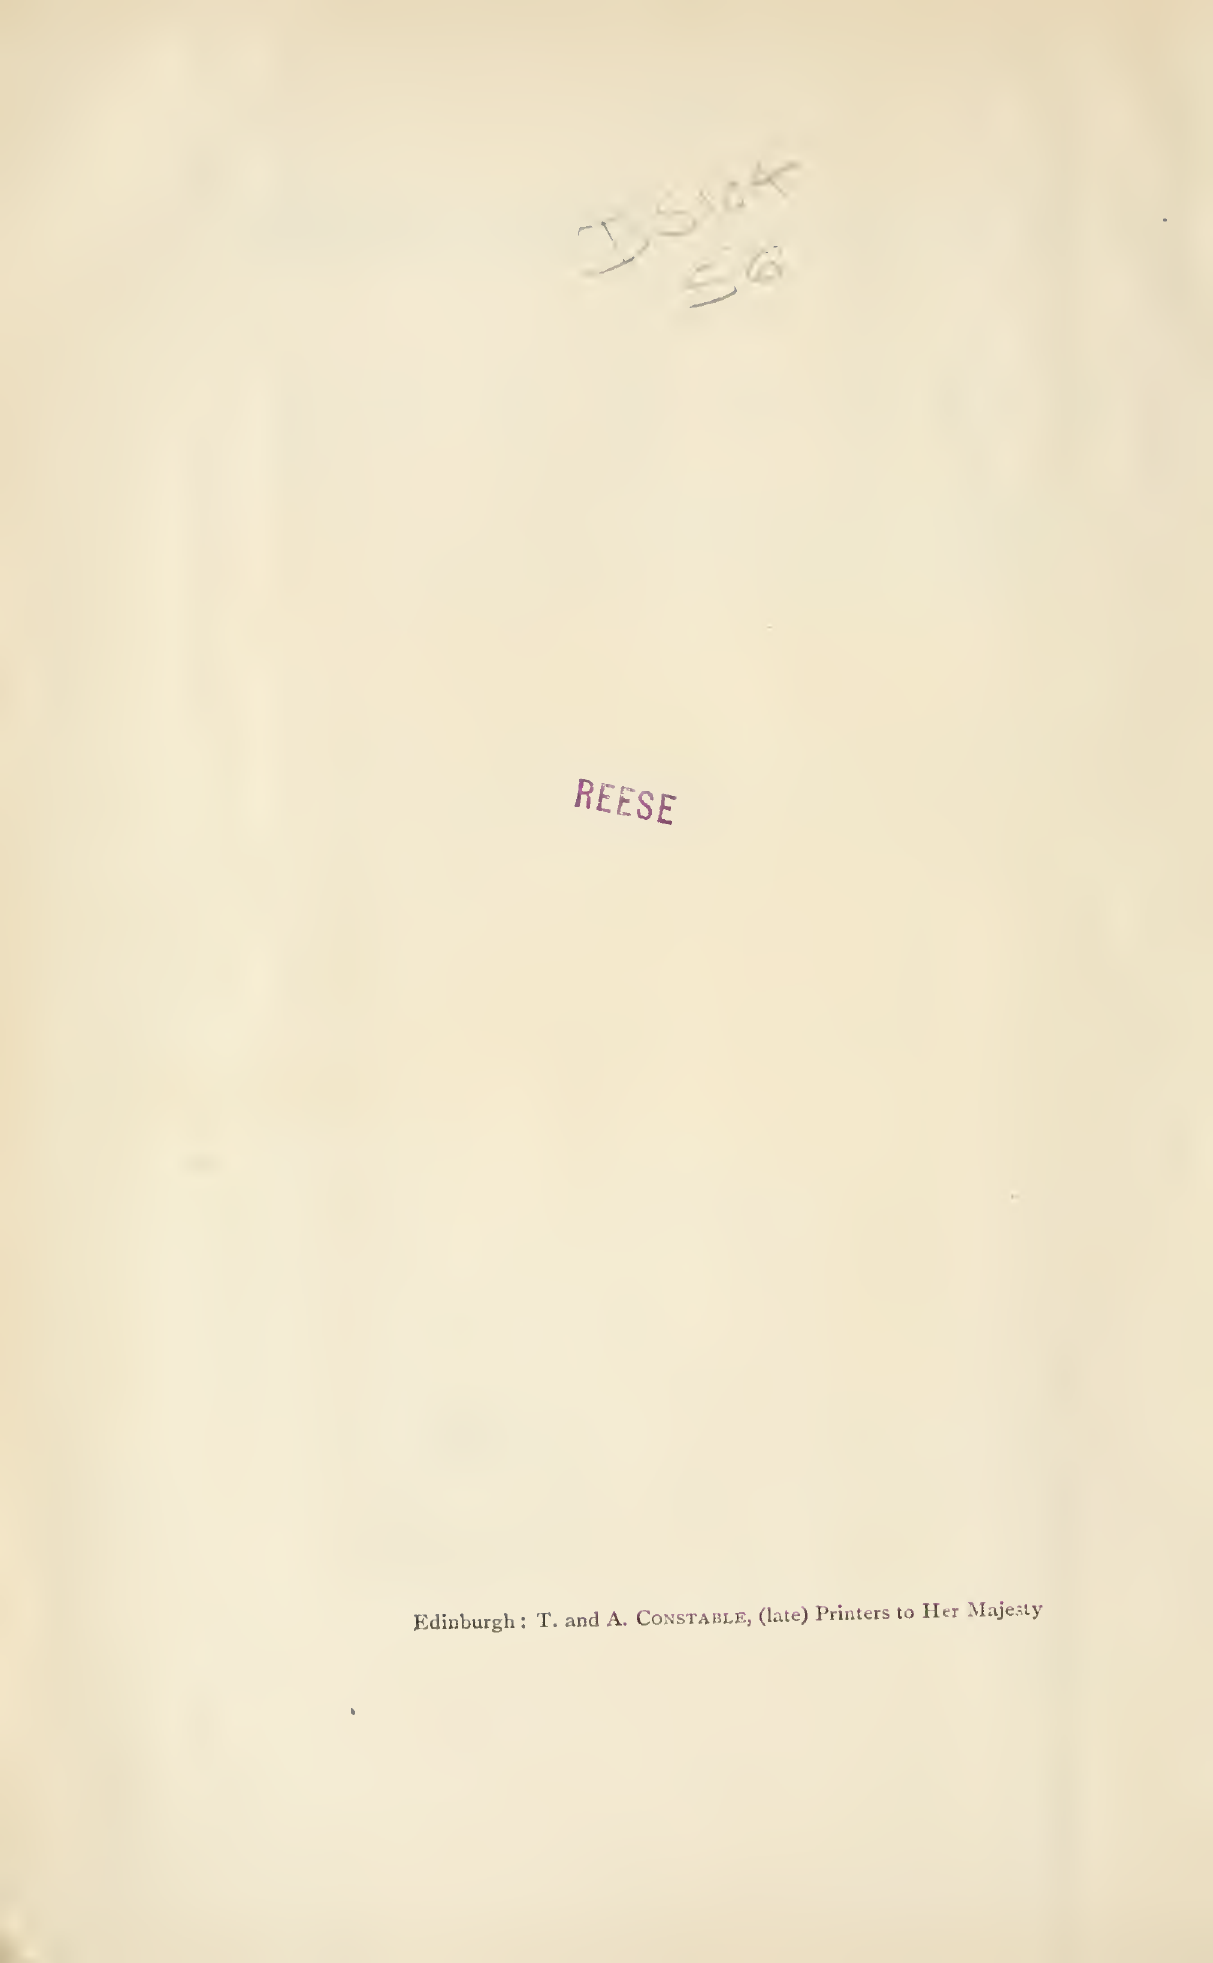 DS104
S6
REESE
Edinburgh: T. and A. CONSTABLE, (late) Printers to Her Majesty